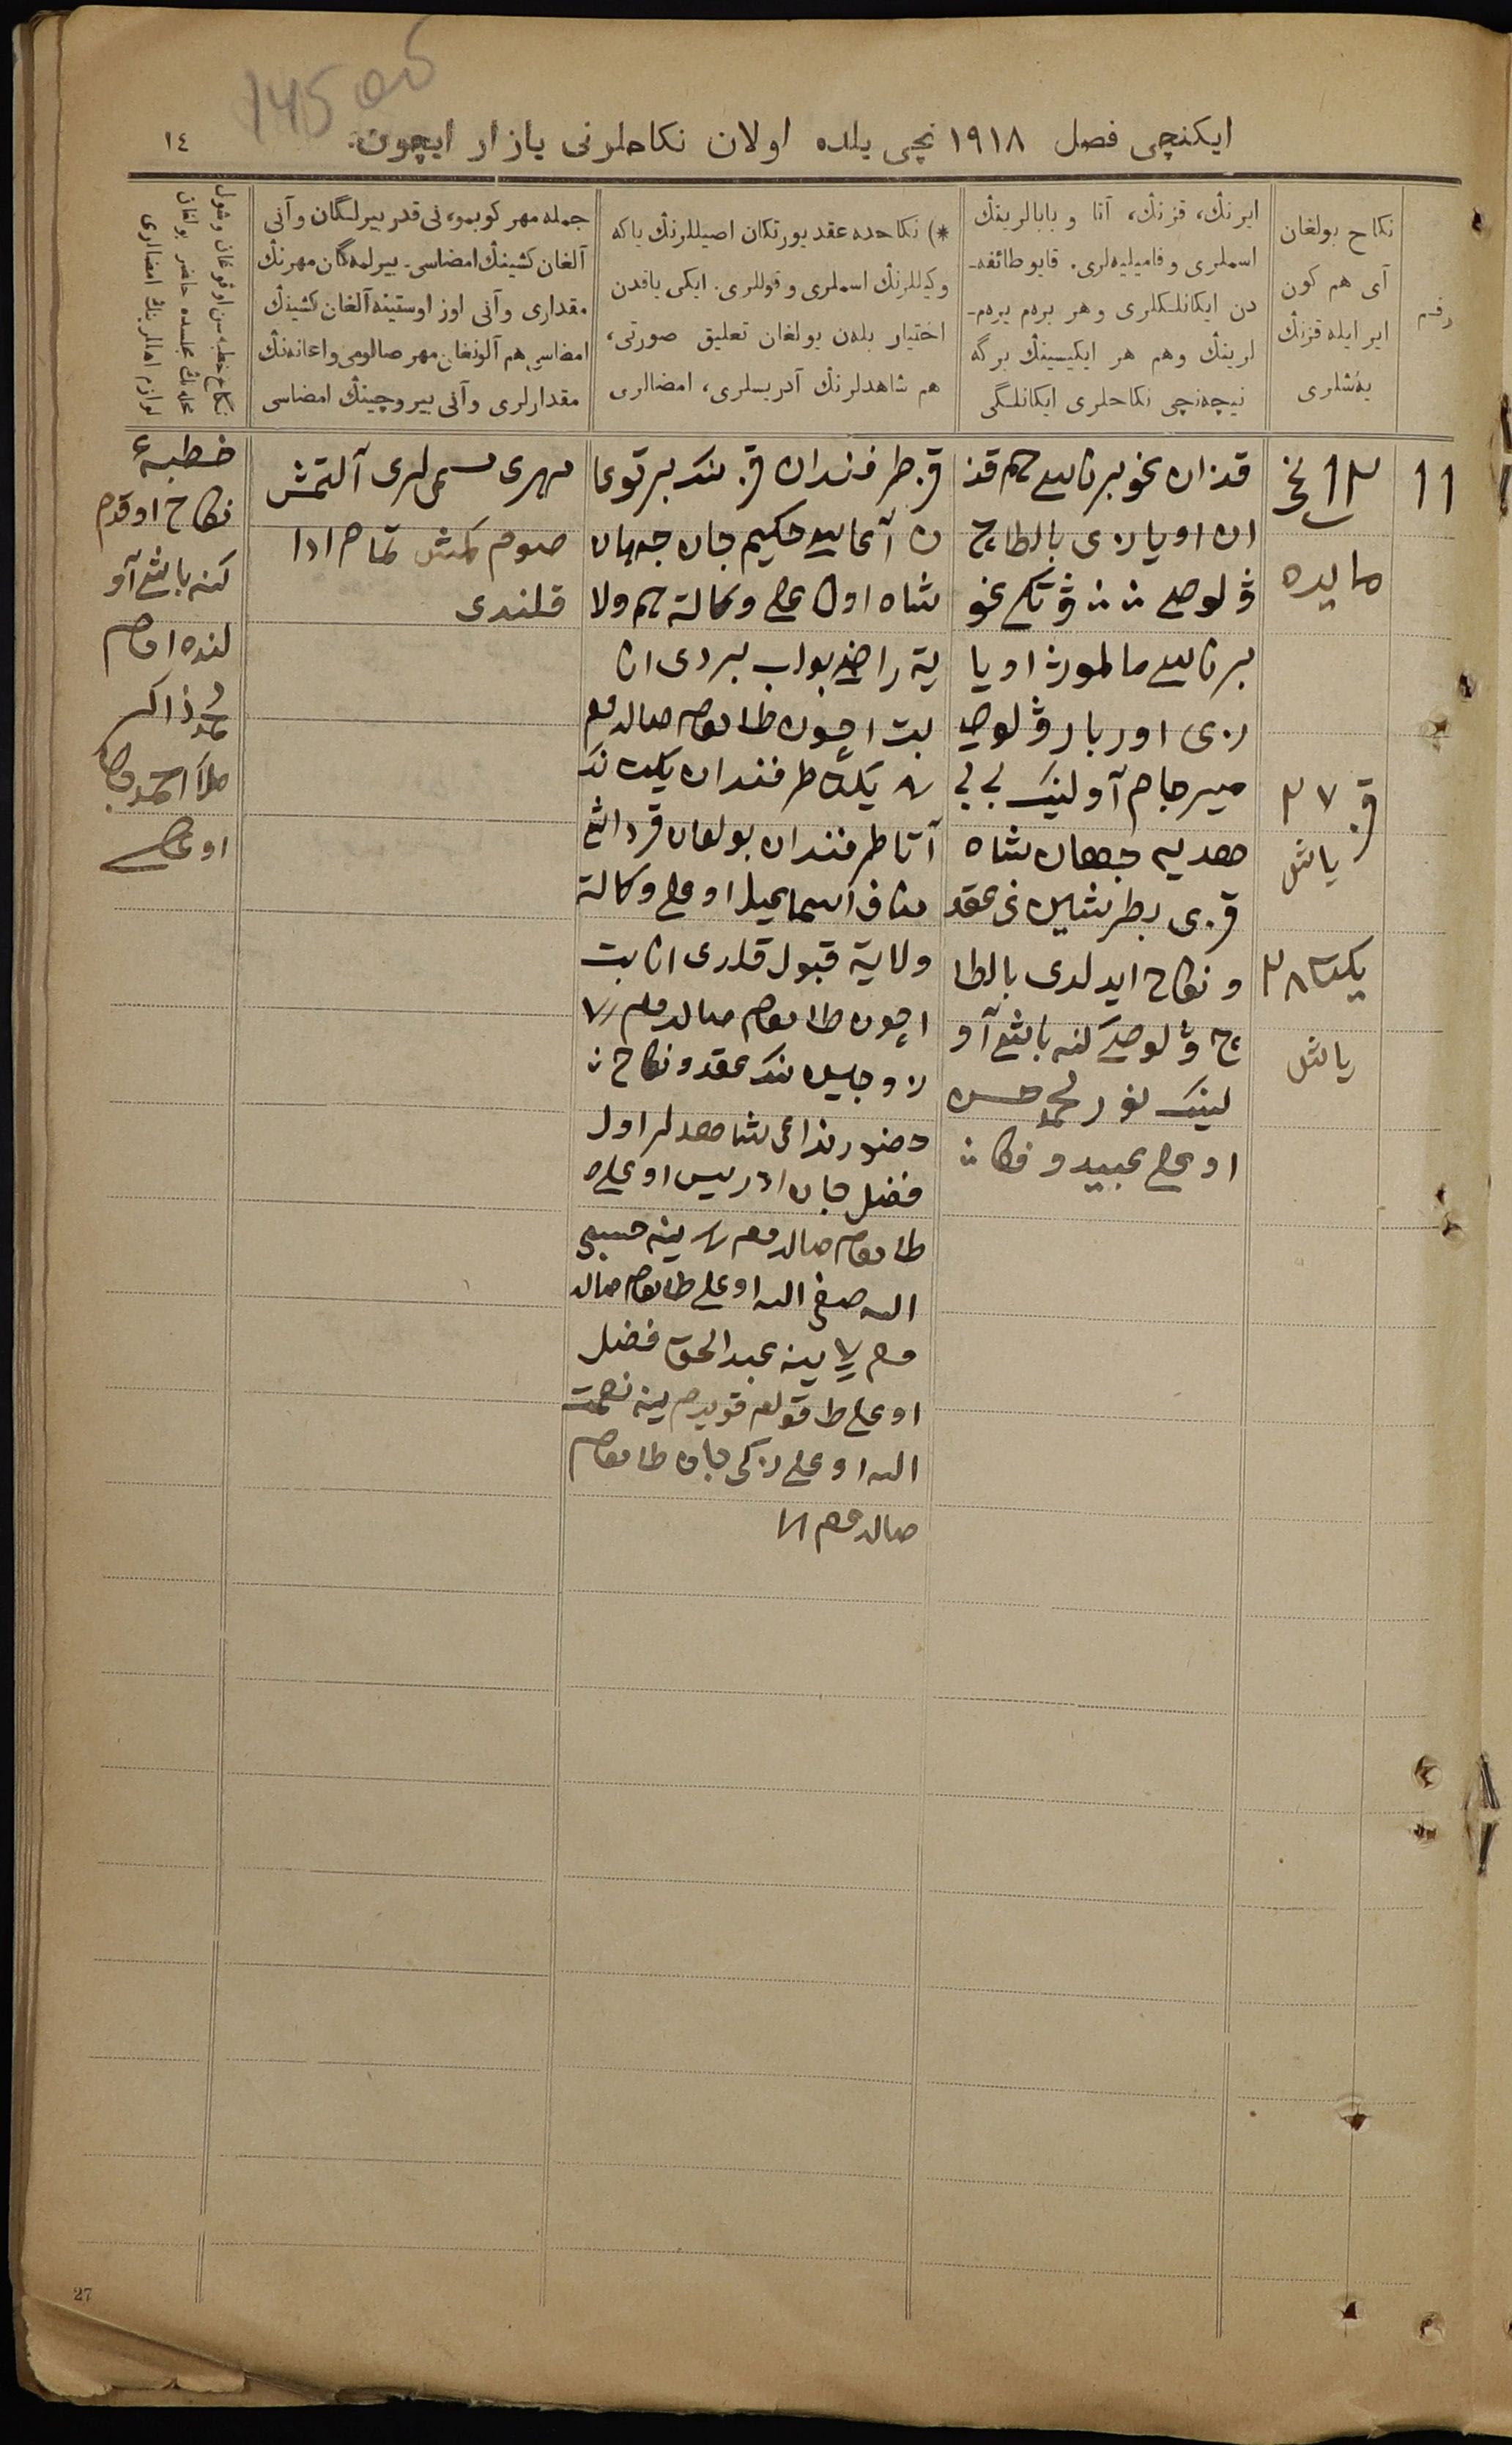 145 об
ایکنچی فصل ١٩١٨ نچی یلده اولان نکاحلرنی یازار ایچون.
١٤
رقم
نکاح بولغان
آی هم کون
ایر ایله قزنڭ
یەشلری
ایرنڭ، قزنڭ، آتا و بابالرینڭ
اسملری و فامیلیەلری. قایو طائفه‌-
دن ایکانلکلری و هر برەم برەم-
لرینڭ وهم هر ایکیسینڭ برگه
نیچەنچی نکاحلری ایکانلگی
*) نکاحده عقد یورتکان اصیللرنڭ یاکه
وکیللرنڭ اسملری و قوللری. ایکی یاقدن
اختیار بلەن بولغان تعلیق صورتی،
هم شاهدلرنڭ آدریسلری، امضالری
جمله مهر کوبمو، نی قدر بیرلگان وآنی
آلغان کشینڭ امضاسی. بیرلمەگان مهرنڭ
مقداری وآنی اوز اوستینه آلغان کشینڭ
امضاسی هم آلونغان مهر صالومی واعانەنڭ
مقدارلری وآنی بیروچینڭ امضاسی
نکاح خطبەسن اوقوغان وشول
محلەنڭ مجلسده حاضر بولغان
لوازم اهللرینڭ امضالری
11
١٣ نچی
مایده
قز ٢٧
یاش
یکت ٢٨
یاش
قزان غوبرناسی هم قز
ان اویازی بالطاچ
ڤولوصی وتکە غو
برناسی مالمیژ اویا
زی اوربار ڤولوصی
میرجام آولینک بی بی
مهدیه جهان شاه
قزی بطرشاسن غی عقد
و نکاح ایدلدی بالطا
چ ڤولوصی کنه باش آو
لینک نور محمد حسن
اوغلی عبیدوفکا
قز طرفندان قزنک برتوغا
ن آغاسی حکیم جان جهان
شاه اوغلی وکالة هم ولا
یة راضی بولب بیردی اثا
بت اچون طامغام صالدم
یکت طرفندان یکت نک
آتا طرفندان بولغان قرداش
مناف اسماعیل اوغلی وکالة
ولایة قبول قلدی اثابت
اچون طامغام صالدم
زوجیین نک عقد ونکاح
حضورنداغی شاهدلر اول
فضل جان ادریس اوغلی
طامغام صالدم ینه حبیب
الله صفی الله اوغلی طامغام صالد
م ینه عبدالحق فضل
اوغلی قولم قویدم ینه نعمت
الله اوغلی زکی جان طامغام
صالدم
مهری مسمی لری آلتمش
صوم کمش تمام ادا
قلندی
خطبۀ
نکاح اوقدم
کنه باش آو
لنده امام
محمد ذاکر
ملا احمدجان
اوغلی
27